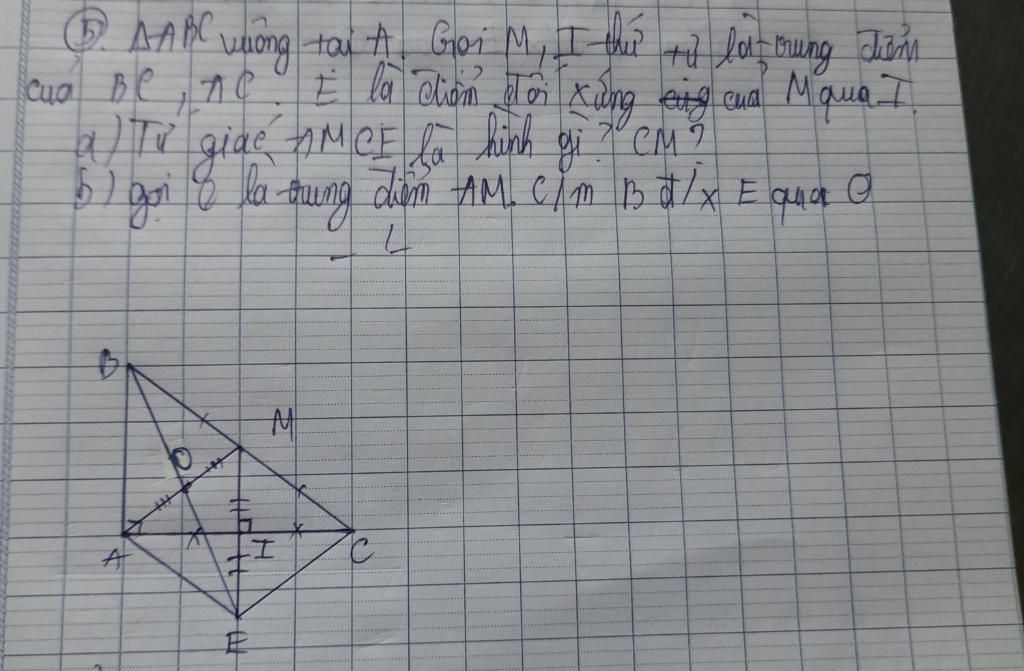 ⑤. ΔABC vuông tại A. Gọi M, I thứ tự là trung điểm
của BC, AC. E là điểm đối xứng của M qua I.
a) Tứ giác AMCE là hình gì? CM?
b) gọi O là trung điểm AM. C/m B đ/x E qua O
B
M
O
A
I
C
E